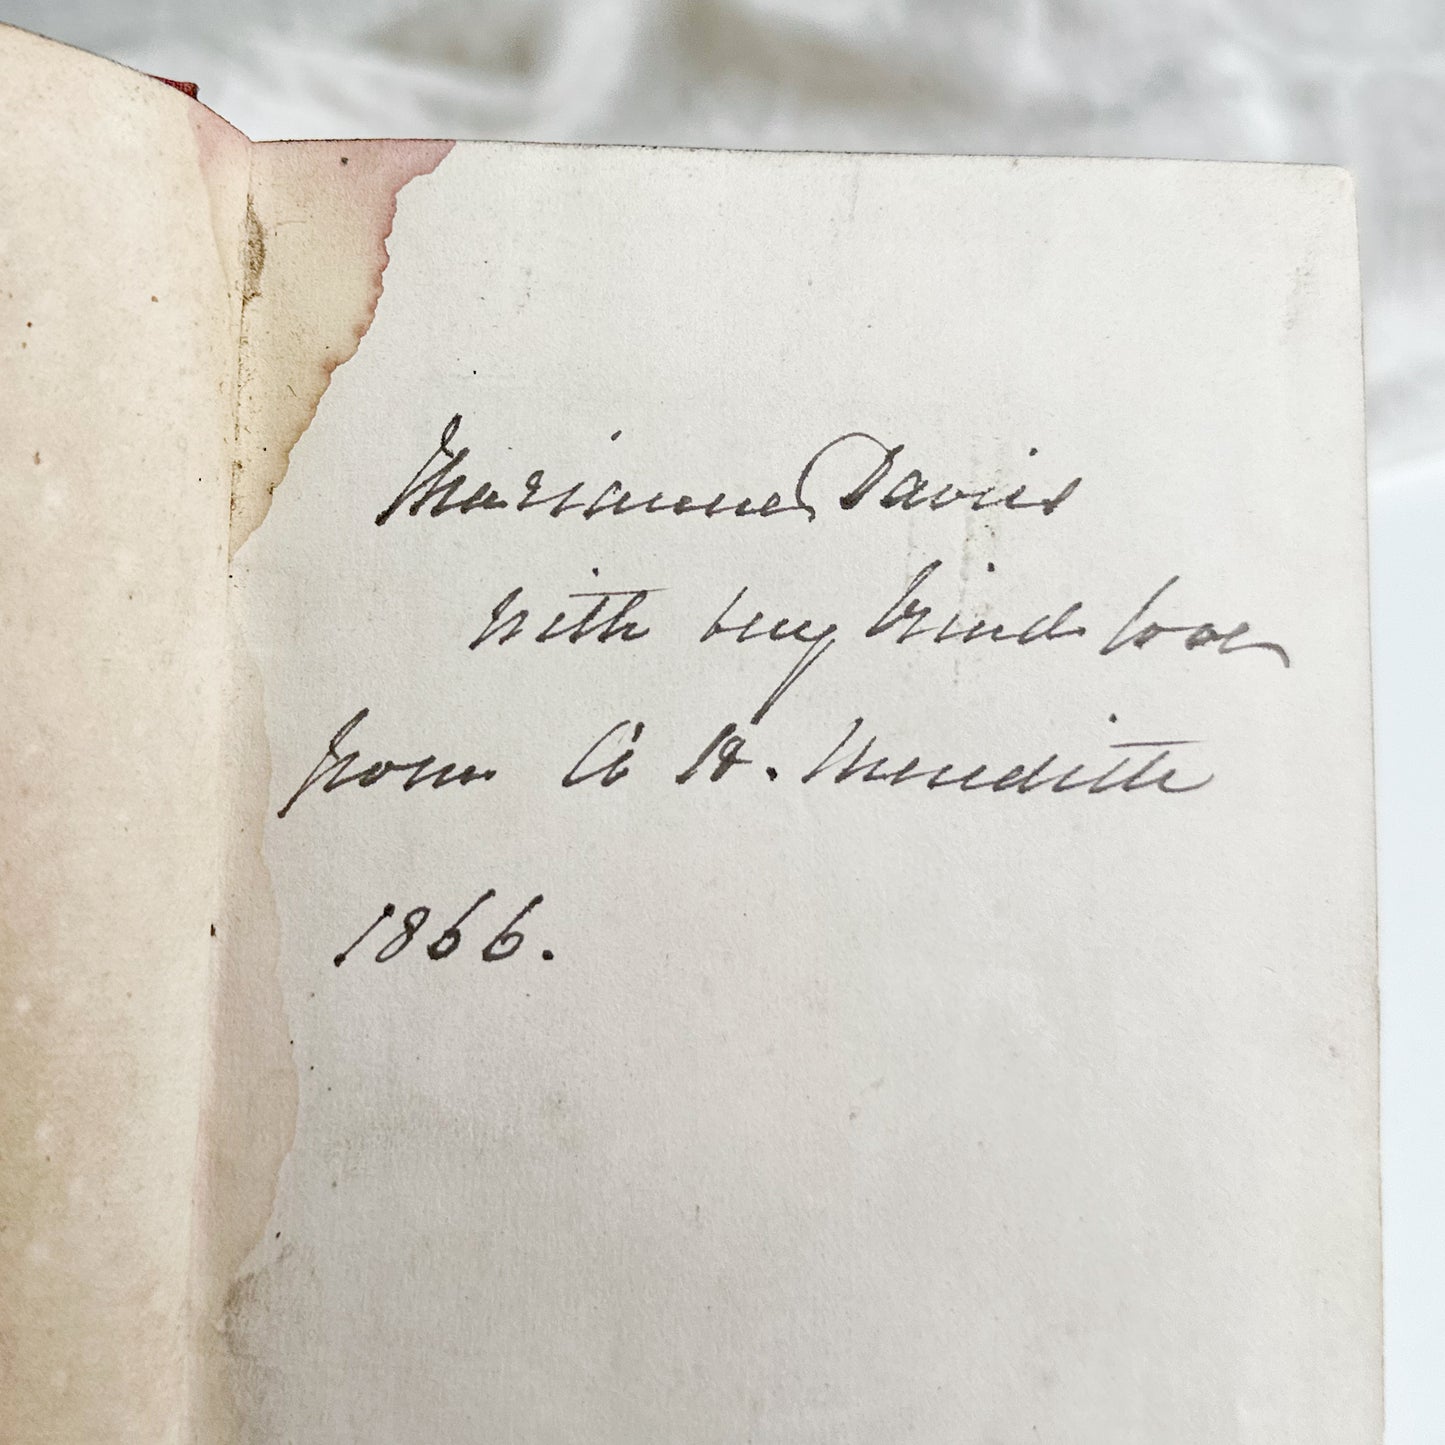 Marianne Davies
with very kind love
from A H. Meredith
1866.